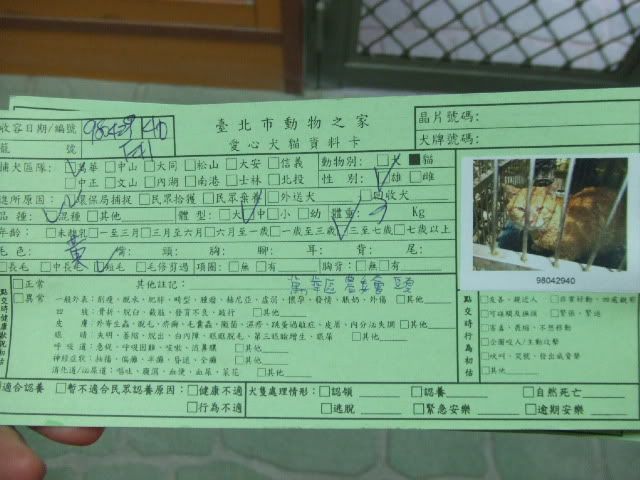 臺北市動物之家
愛心犬貓資料卡
收容日期/編號 980429 40
籠 號
晶片號碼:
犬牌號碼:
捕犬區隊: □萬華 □中山 □大同 □松山 □大安 □信義
□中正 □文山 □內湖 □南港 □士林 □北投
動物別: □犬 ■貓
性 別: □雄 □雌
進所原因: □環保局捕捉 □民眾拾獲 □民眾棄養 □外送犬 □回收犬
品 種: □混種 □其他 體 型: □大 □中 □小 □幼 體重: 3 Kg
年齡: □未離乳 □一至三月 □三月至六月 □六月至一歲 □一歲至三歲 □三至七歲 □七歲以上
毛 色: 黃 背: 頭: 胸: 腳: 耳: 背: 尾:
□長毛 □中長毛 □短毛 □毛修剪過 項圈: □無 □有 胸背: □無 □有
98042940
點交時健康狀況初估
□正常
□異常
其他註記: 萬華區
一般外表: 削瘦、脫水、肥胖、畸型、腫瘤、赫尼亞、虛弱、懷孕、發情、脹奶、外傷 □其他
四 肢: 骨折、跛行、截肢、發育不良、跛行 □其他
皮 膚: 外寄生蟲、脫毛、疥癬、毛囊蟲、黴菌、濕疹、跌蕩過敏症、皮屑、內分泌失調 □其他
眼 睛: 失明、萎縮、脫出、白內障、眼瞼脫毛、第三眼瞼增生、眼屎 □其他
呼 吸 道: 急促、呼吸困難、咳嗽、流鼻膿 □其他
神經症狀: 抽搐、偏癱、半癱、昏迷、全癱 □其他
消化道/泌尿道: 嘔吐、腹瀉、血便、血尿、菜花 □其他
點交時行為初估
□友善、親近人 □非常好動、四處觀看
□可碰觸及撫摸 □緊張、緊迫
□害羞、畏縮、不思移動
□企圖咬人/主動攻擊
□吠叫、哭號、發出威脅聲
□其他
□適合認養 □暫不適合民眾認養原因: □健康不適
□行為不適
犬隻處理情形: □認領 □認養 □自然死亡
□逃脫 □緊急安樂 □逾期安樂